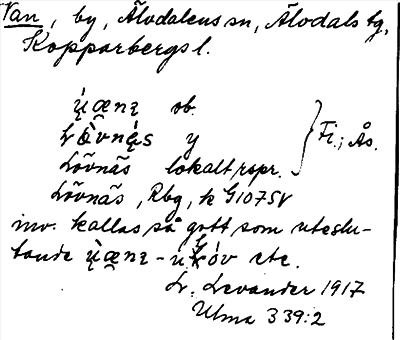 Van, by, Älvdalens sn, Älvdals tg,
Kopparbergs l.
u̯ænɐ ob.
Lövnäs y } Fi.; Ås.
Lövnäs lokalt rspr.
Lövnäs, Rbg, k G107SV
inv. kallas så gott som uteslu-
tande u̯ænɐ etc.
L. Levander 1917
Ulma 339:2